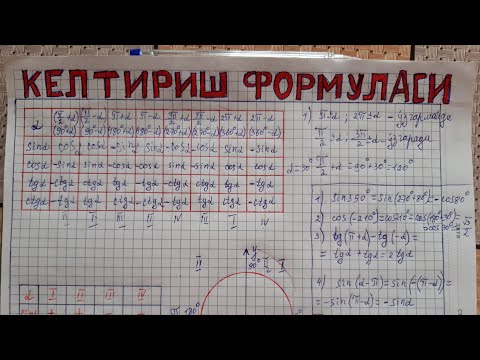 КЕЛТИРИШ ФОРМУЛАСИ
α (π/2+α) (π/2-α) π+α π-α 3π/2+α 3π/2-α 2π+α 2π-α
(90°+α) (90°-α) (180°+α) (180°-α) (270°+α) (270°-α) (360°+α) (360°-α)
sinα cosα cosα -sinα sinα -cosα -cosα sinα -sinα
cosα -sinα sinα -cosα -cosα sinα -sinα cosα cosα
tgα -ctgα ctgα tgα -tgα -ctgα ctgα tgα -tgα
ctgα -tgα tgα ctgα -ctgα -tgα tgα ctgα -ctgα
II I III II IV III I IV
1) π±α ; 2π±α -
π/2±α ; 3π/2±α -
α=30° π/2+α=90°+30°=120°
1) sin350°=sin(270°+80°)=-cos80°
2) cos(-210°)=cos210°=cos(180°+30°)=
=-cos30°=-√3/2
3) tg(π+α)-tg(-α)=
=tgα+tgα=2tgα
4) sin(α-π)=sin(-(π-α))=
=-sin(π-α)=-sinα
II y I
90° π/2
π 180°
α I II III IV